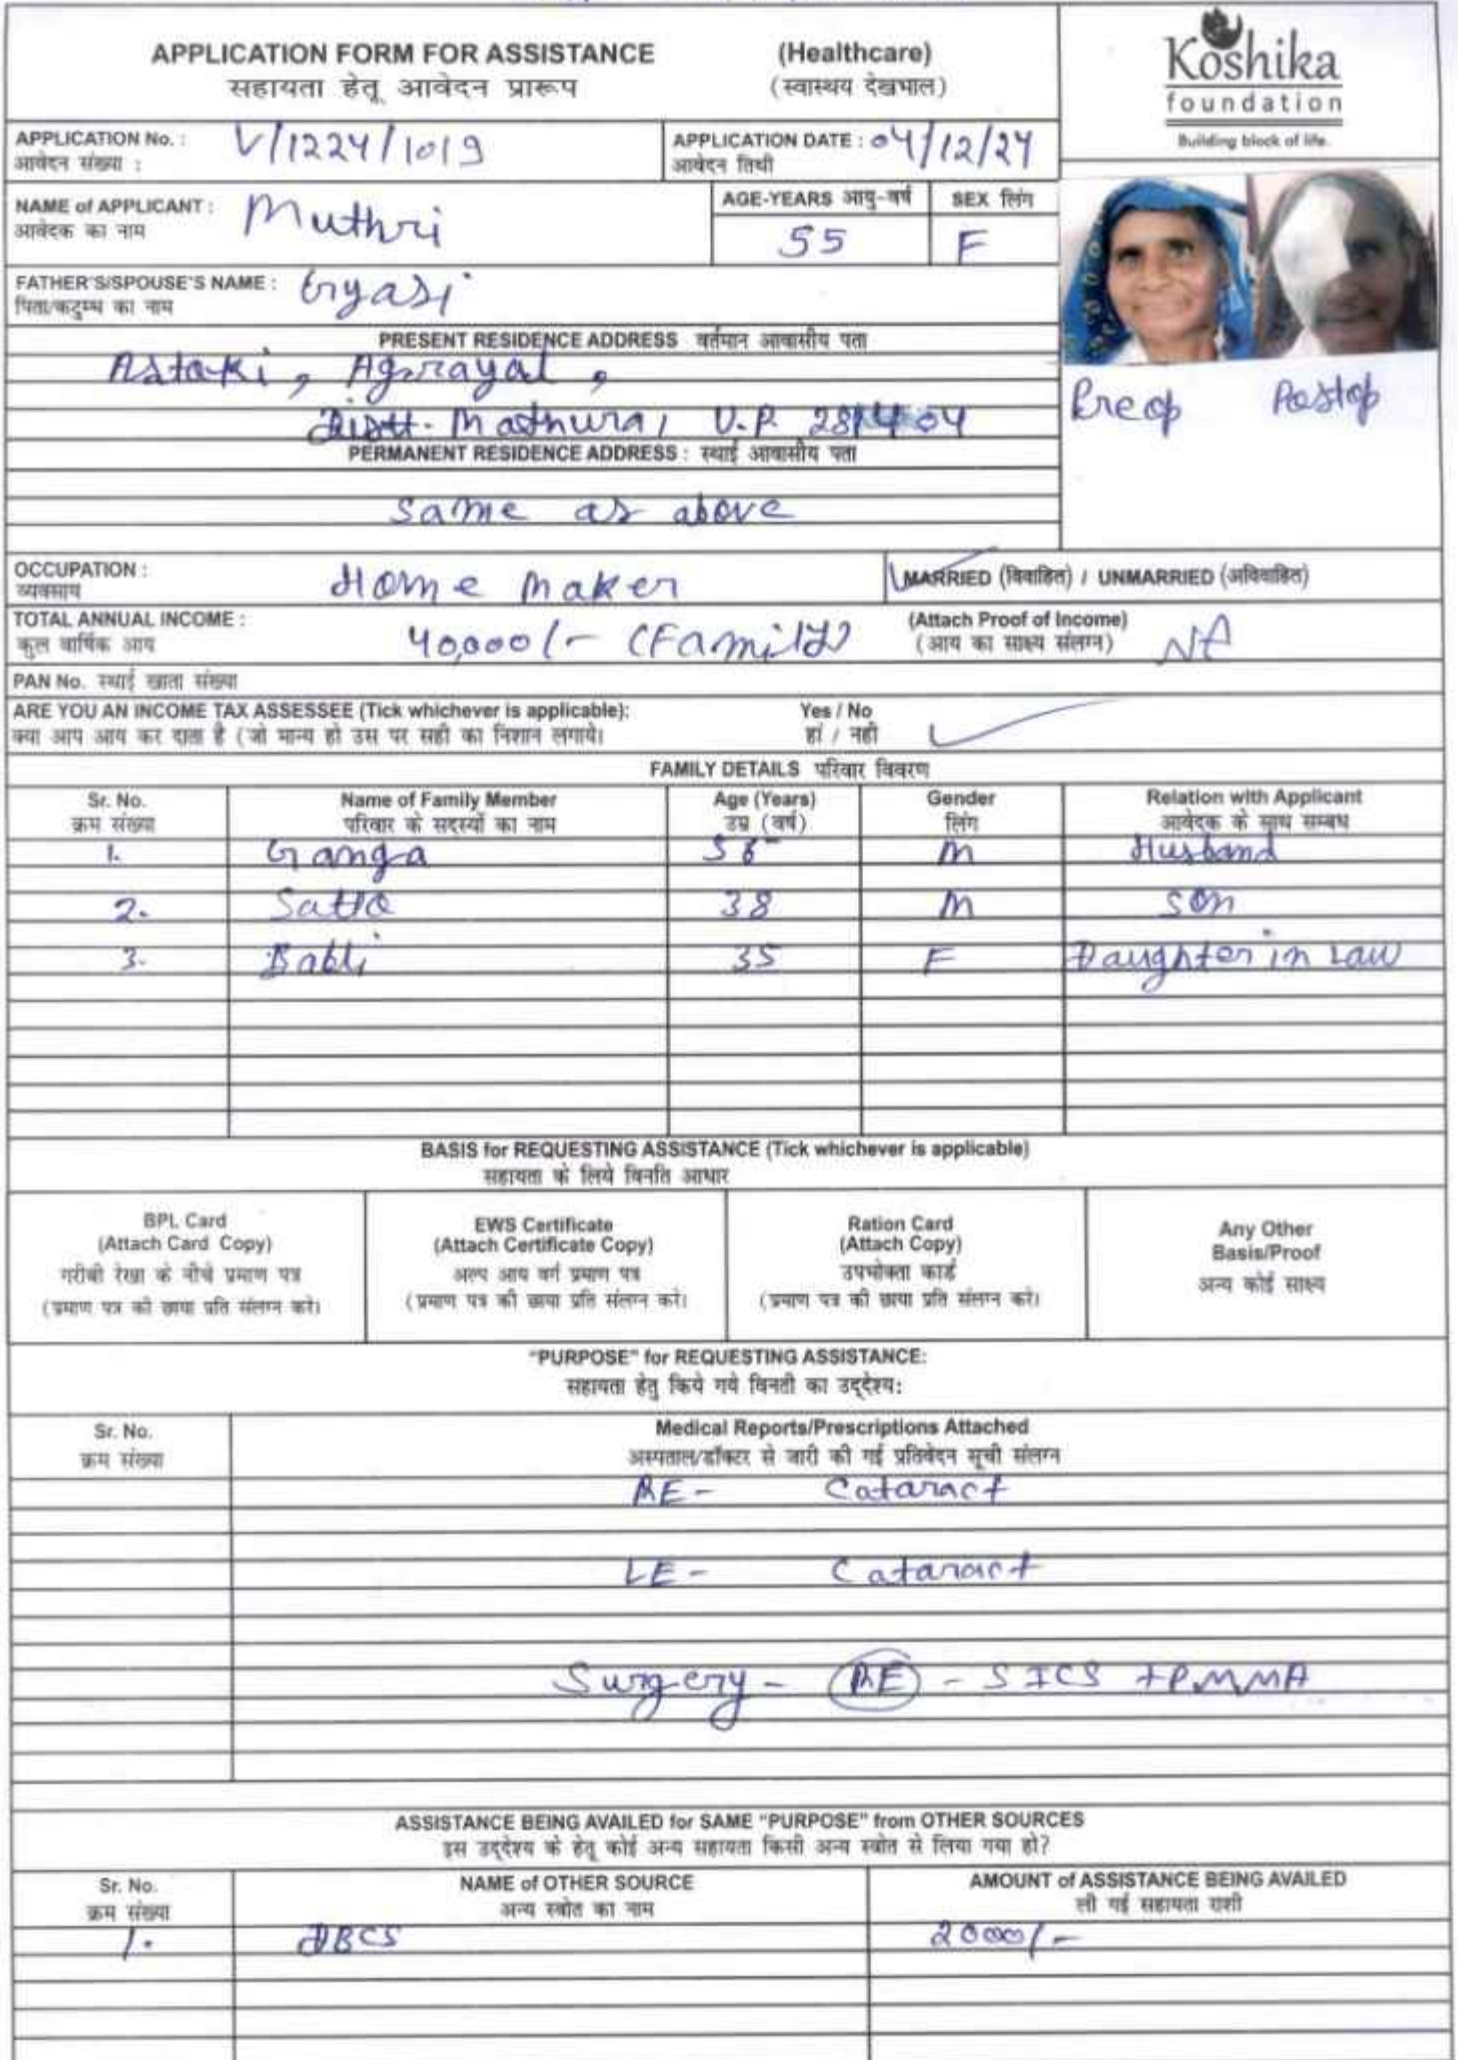 APPLICATION FORM FOR ASSISTANCE (Healthcare)
सहायता हेतू आवेदन प्रारूप (स्वास्थय देखभाल)
Koshika
foundation
Building block of life.
APPLICATION No. : V/1224/1019 APPLICATION DATE : 04/12/24
आवेदन संख्या : आवेदन तिथी
NAME of APPLICANT : Muthri AGE-YEARS आयु-वर्ष SEX लिंग
आवेदक का नाम 55 F
FATHER'S/SPOUSE'S NAME : Gyasi
पिता/कटुम्ब का नाम
PRESENT RESIDENCE ADDRESS वर्तमान आवासीय पता
Astaki, Agarayal,
Distt. Mathura, U.P. 281404
Preop Postop
PERMANENT RESIDENCE ADDRESS : स्थाई आवासीय पता
Same as above
OCCUPATION : Home maker MARRIED (विवाहित) / UNMARRIED (अविवाहित)
व्यवसाय
TOTAL ANNUAL INCOME : 40,000/- (Family) (Attach Proof of Income) NA
कुल वार्षिक आय (आय का साक्ष्य संलग्न)
PAN No. स्थाई खाता संख्या
ARE YOU AN INCOME TAX ASSESSEE (Tick whichever is applicable): Yes / No
क्या आप आय कर दाता है (जो मान्य हो उस पर सही का निशान लगाये। हां / नही
FAMILY DETAILS परिवार विवरण
Sr. No. Name of Family Member Age (Years) Gender Relation with Applicant
क्रम संख्या परिवार के सदस्यों का नाम उम्र (वर्ष) लिंग आवेदक के साथ सम्बध
1. Ganga M Husband
2. Satto 38 M Son
3. Babli 35 F Daughter in Law
BASIS for REQUESTING ASSISTANCE (Tick whichever is applicable)
सहायता के लिये विनति आधार
BPL Card
(Attach Card Copy)
गरीबी रेखा के नीचे प्रमाण पत्र
(प्रमाण पत्र की छाया प्रति संलग्न करे।
EWS Certificate
(Attach Certificate Copy)
अल्प आय वर्ग प्रमाण पत्र
(प्रमाण पत्र की छाया प्रति संलग्न करे।
Ration Card
(Attach Copy)
उपभोक्ता कार्ड
(प्रमाण पत्र की छाया प्रति संलग्न करे।
Any Other
Basis/Proof
अन्य कोई साक्ष्य
"PURPOSE" for REQUESTING ASSISTANCE:
सहायता हेतु किये गये विनती का उद्देश्य:
Sr. No. Medical Reports/Prescriptions Attached
क्रम संख्या अस्पताल/डॉक्टर से जारी की गई प्रतिवेदन सूची संलग्न
RE- Cataract
LE- Cataract
Surgery - RE - SICS +PMMA
ASSISTANCE BEING AVAILED for SAME "PURPOSE" from OTHER SOURCES
इस उद्देश्य के हेतू कोई अन्य सहायता किसी अन्य स्त्रोत से लिया गया हो?
Sr. No. NAME of OTHER SOURCE AMOUNT of ASSISTANCE BEING AVAILED
क्रम संख्या अन्य स्त्रोत का नाम ली गई सहायता राशी
1. DBCS 2000/-